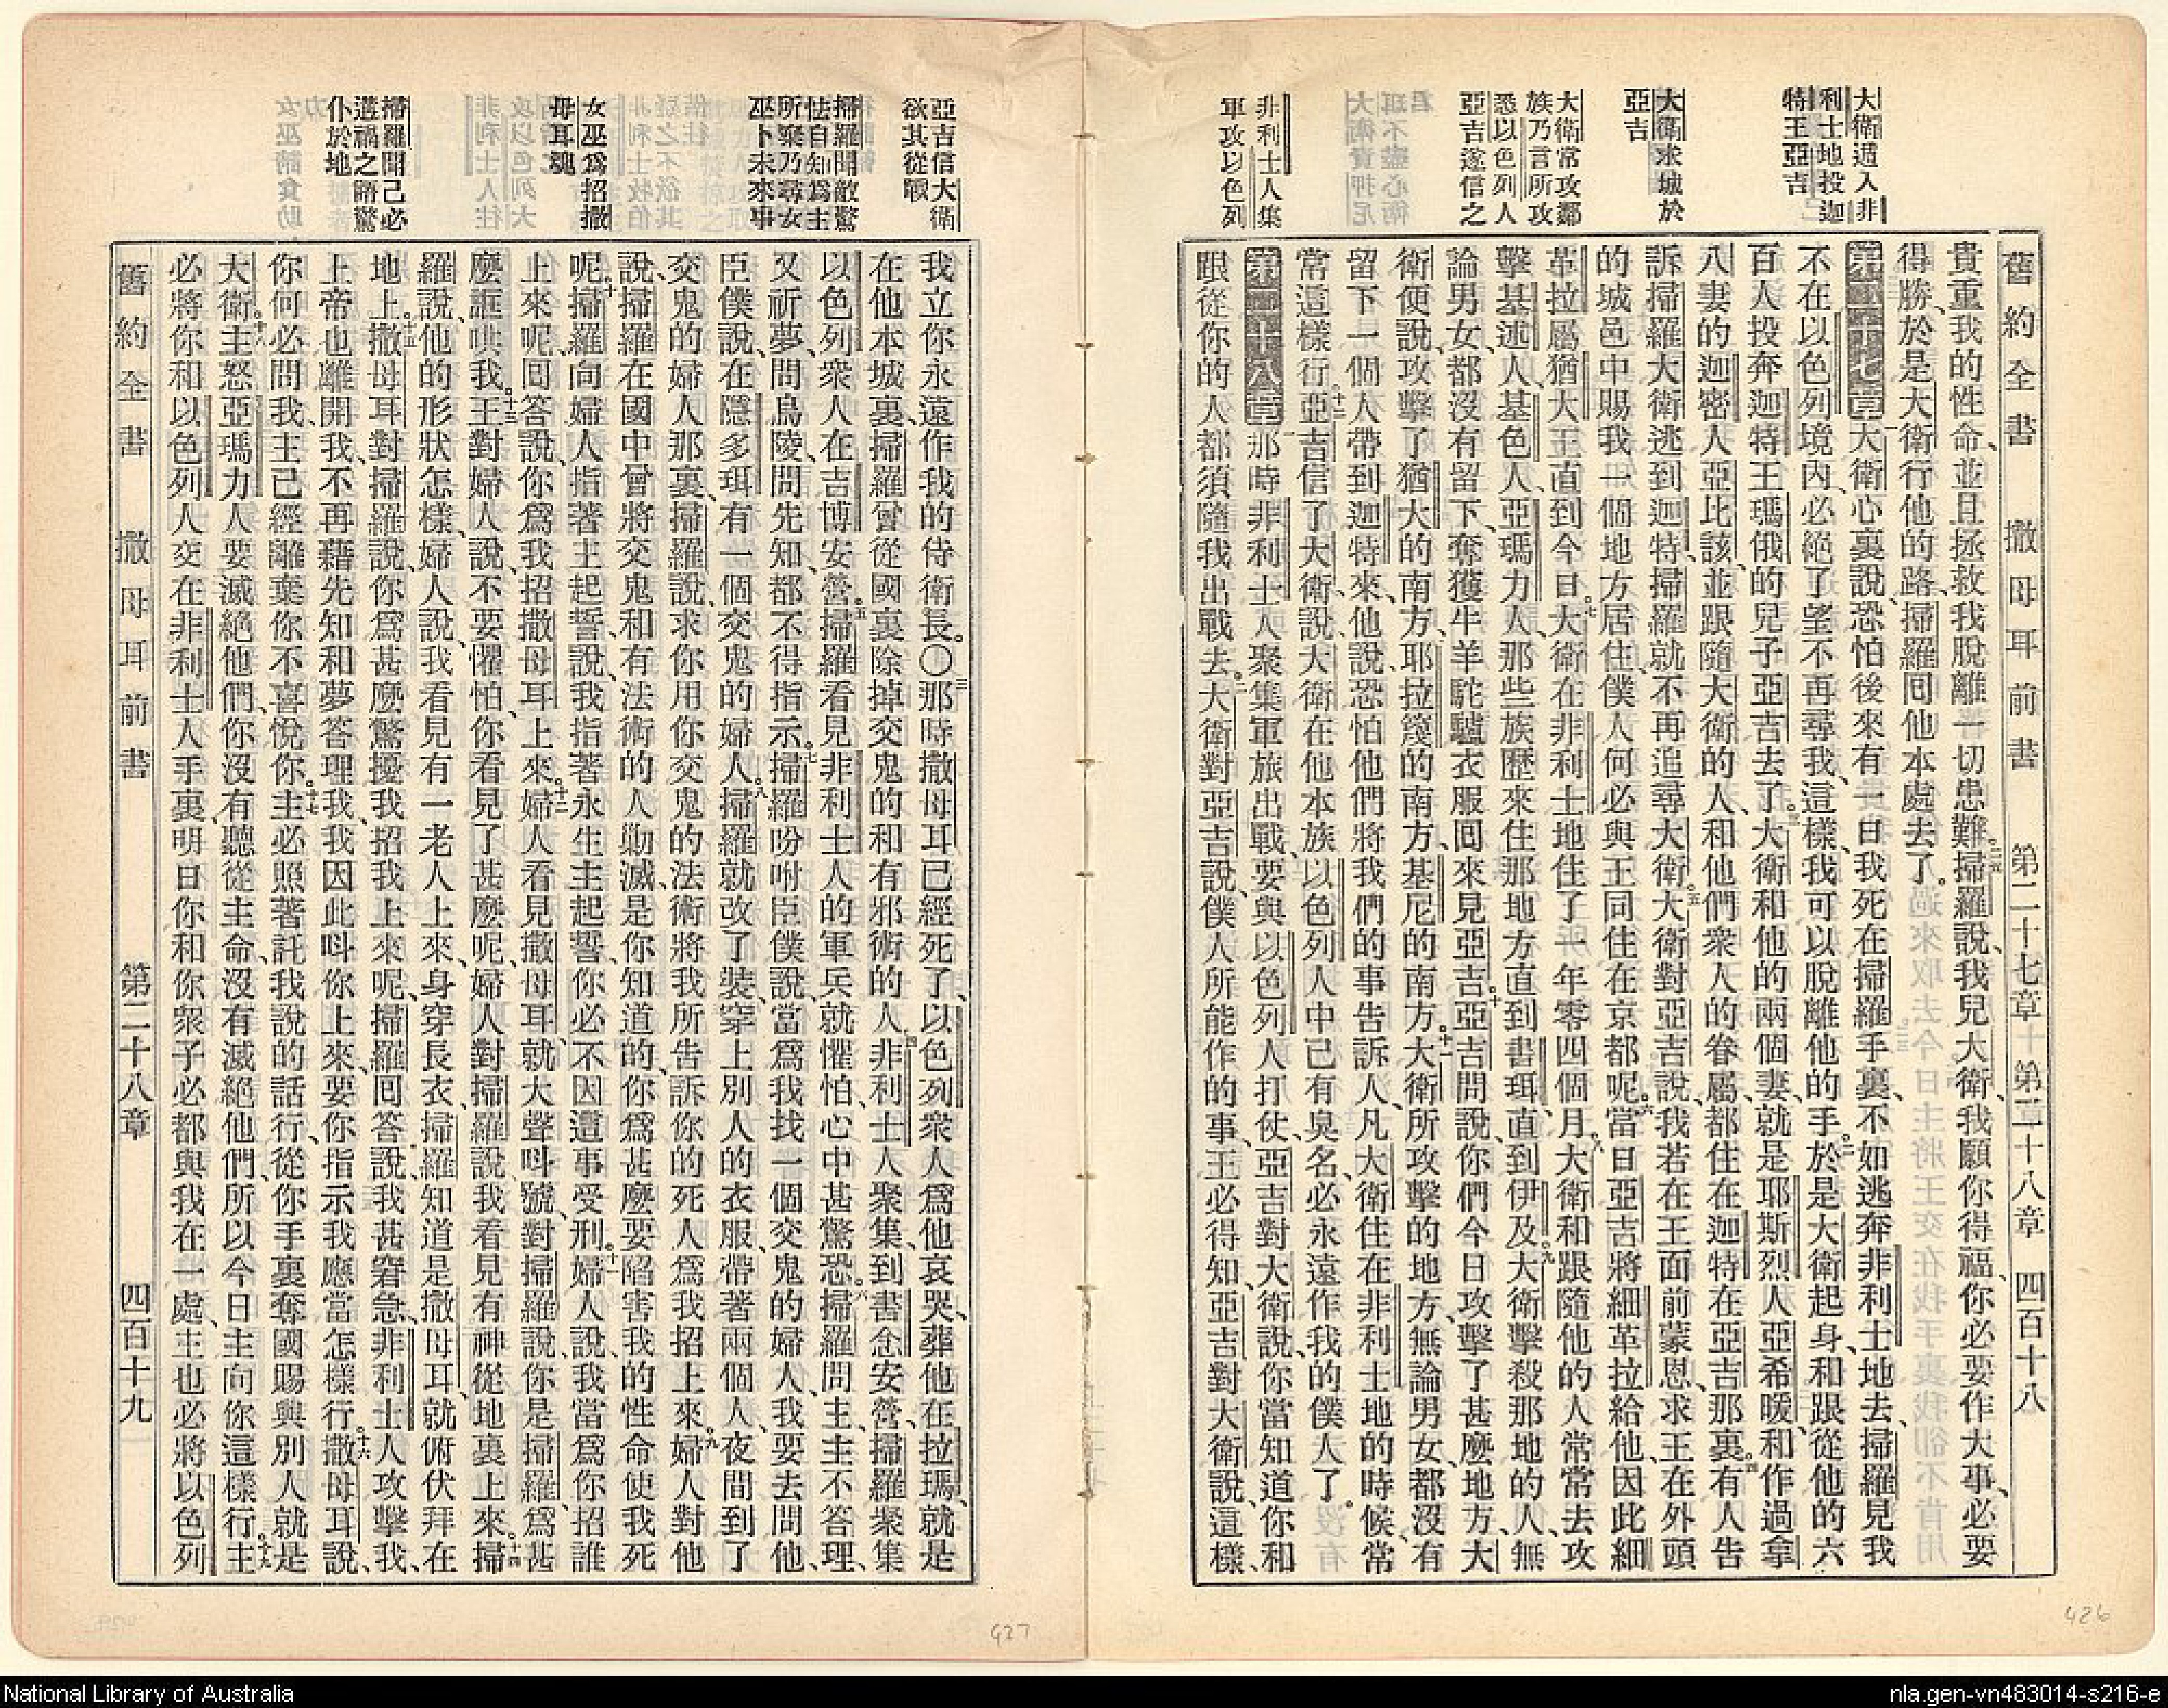 舊約全書 撒母耳前書 第二十七章 第二十八章 四百十八
大衛遁入非
利士地投迦
特王亞吉
大衛求城於
亞吉
大衛常攻鄰
族乃言所攻
悉以色列人
亞吉遂信之
非利士人集
軍攻以色列
貴重我的性命、並且拯救我脫離一切患難。二五掃羅說、我兒大衛、我願你得福、你必要作大事、必要
得勝、於是大衛行他的路、掃羅囘他本處去了。
第二十七章 一大衛心裏說、恐怕後來有一日我死在掃羅手裏、不如逃奔非利士地去、掃羅見我
不在以色列境內、必絕了望不再尋我、這樣我可以脫離他的手。二於是大衛起身、和跟從他的六
百人投奔迦特王瑪俄的兒子亞吉去了。三大衛和他的兩個妻、就是耶斯烈人亞希暖、和作過拿
八妻的迦密人亞比該、並跟隨大衛的人、和他們衆人的眷屬、都住在迦特在亞吉那裏。四有人告
訴掃羅大衛逃到迦特、掃羅就不再追尋大衛。五大衛對亞吉說、我若在王面前蒙恩、求王在外頭
的城邑中賜我一個地方居住、僕人何必與王同住在京都呢。六當日亞吉將細革拉給他、因此細
革拉屬猶大王直到今日。七大衛在非利士地住了一年零四個月。八大衛和跟隨他的人常常去攻
擊基述人、基色人、亞瑪力人、那些族歷來住那地方直到書珥、直到伊及。九大衛擊殺那地的人、無
論男女、都沒有留下、奪獲牛羊駝驢衣服囘來見亞吉。十亞吉問說、你們今日攻擊了甚麼地方、大
衛便說、攻擊了猶大的南方、耶拉篾的南方、基尼的南方。十一大衛所攻擊的地方、無論男女、都沒有
留下一個人帶到迦特來、他說、恐怕他們將我們的事告訴人、凡大衛住在非利士地的時候、常
常這樣行。十二亞吉信了大衛、說、大衛在他本族以色列人中已有臭名、必永遠作我的僕人了。
第二十八章 一那時非利士人聚集軍旅出戰、要與以色列人打仗、亞吉對大衛說、你當知道你和
跟從你的人都須隨我出戰去。二大衛對亞吉說、僕人所能作的事、王必得知、亞吉對大衛說、這樣、
426
亞吉信大衛
欲其從戰
掃羅聞敵驚
怯自知爲主
所棄乃尋女
巫卜未來事
女巫爲招撒
母耳魂
掃羅聞己必
遘禍之語驚
仆於地
我立你永遠作我的侍衛長。〇三那時撒母耳已經死了、以色列衆人爲他哀哭、葬他在拉瑪、就是
在他本城裏、掃羅曾從國裏除掉交鬼的和有邪術的人。四非利士人聚集、到書念安營、掃羅聚集
以色列衆人在吉博安營。五掃羅看見非利士人的軍兵就懼怕、心中甚驚恐。六掃羅問主、主不答理、
又祈夢、問烏陵、問先知、都不得指示。七掃羅吩咐臣僕說、當爲我找一個交鬼的婦人、我要去問他、
臣僕說、在隱多珥有一個交鬼的婦人。八掃羅就改了裝、穿上別人的衣服、帶著兩個人、夜間到了
交鬼的婦人那裏、掃羅說、求你用你交鬼的法術將我所告訴你的死人爲我招上來。九婦人對他
說、掃羅在國中曾將交鬼和有法術的人勦滅、是你知道的、你爲甚麼要陷害我的性命使我死
呢。十掃羅向婦人指著主起誓、說、我指著永生主起誓、你必不因這事受刑。十一婦人說、我當爲你招誰
上來呢、囘答說、你爲我招撒母耳上來。十二婦人看見撒母耳、就大聲呌號、對掃羅說、你是掃羅、爲甚
麼誆哄我。十三王對婦人說、不要懼怕、你看見了甚麼呢、婦人對掃羅說、我看見有神從地裏上來。十四掃
羅說、他的形狀怎樣、婦人說、我看見有一老人上來、身穿長衣、掃羅知道是撒母耳、就俯伏拜在
地上。十五撒母耳對掃羅說、你爲甚麼驚擾我招我上來呢、掃羅囘答說、我甚窘急、非利士人攻擊我、
上帝也離開我、不再藉先知和夢答理我、我因此呌你上來、要你指示我應當怎樣行。十六撒母耳說、
你何必問我、主已經離棄你不喜悅你。十七主必照著託我說的話行、從你手裏奪國賜與別人就是
大衛。十八主怒亞瑪力人要滅絕他們、你沒有聽從主命、沒有滅絕他們、所以今日主向你這樣行。十九主
必將你和以色列人交在非利士人手裏、明日你和你衆子必都與我在一處、主也必將以色列
舊約全書 撒母耳前書 第二十八章 四百十九
427
National Library of Australia
nla.gen-vn483014-s216-e